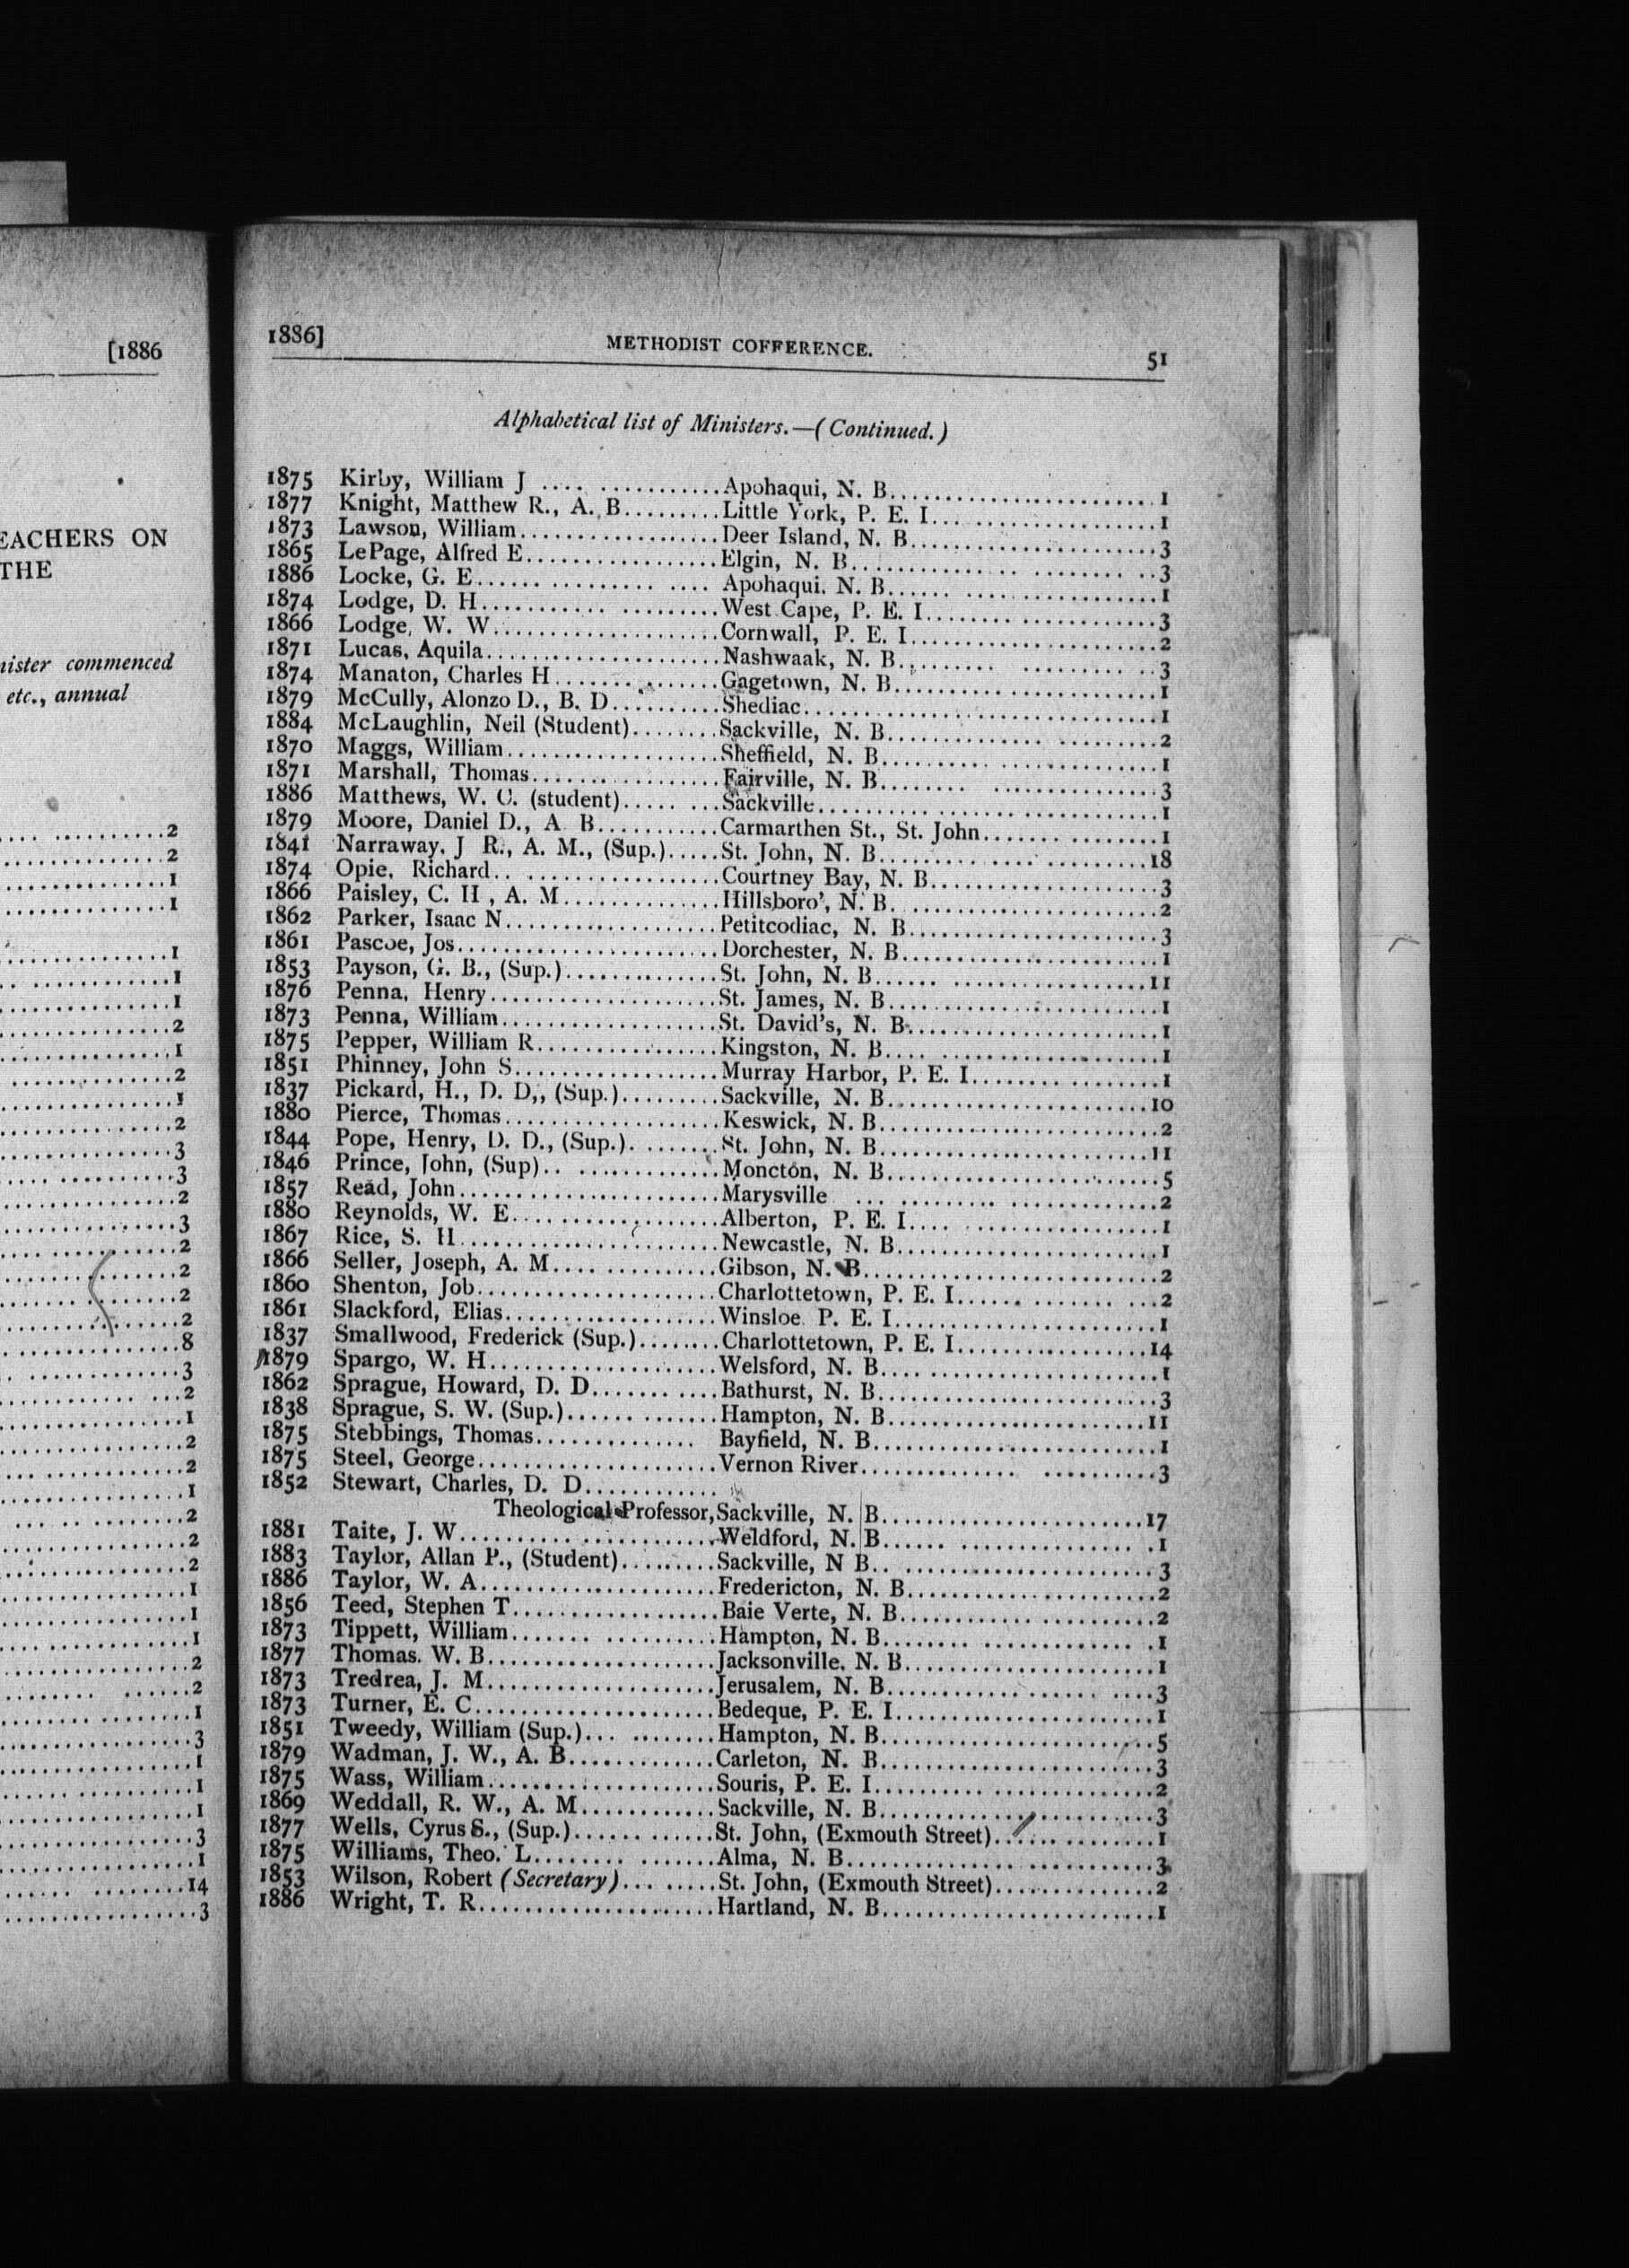 [1886
EACHERS ON
THE
nister commenced
etc., annual
2
2
1
1
1
1
1
2
1
2
1
2
3
3
2
3
2
2
2
2
8
3
2
1
2
2
1
2
2
2
1
1
1
2
2
1
3
1
1
1
3
1
14
3
1886] METHODIST COFFERENCE. 51
Alphabetical list of Ministers.—(Continued.)
1875 Kirby, William J .... ............Apohaqui, N. B..........................1
1877 Knight, Matthew R., A. B.........Little York, P. E. I... ................1
1873 Lawson, William..................Deer Island, N. B.......................3
1865 LePage, Alfred E.................Elgin, N. B............. ........ ..3
1886 Locke, G. E...... ......... .... Apohaqui. N. B...... ..................1
1874 Lodge, D. H........... .........West Cape, P. E. I........ .............3
1866 Lodge, W. W.....................Cornwall, P. E. I.......................2
1871 Lucas, Aquila.....................Nashwaak, N. B.......... ........ ..3
1874 Manaton, Charles H...............Gagetown, N. B.........................1
1879 McCully, Alonzo D., B. D..........Shediac................................1
1884 McLaughlin, Neil (Student)........Sackville, N. B.............. .........2
1870 Maggs, William...................Sheffield, N. B............ ............1
1871 Marshall, Thomas.................Fairville, N. B........ ...............3
1886 Matthews, W. C. (student)..... ...Sackville..............................1
1879 Moore, Daniel D., A B...........Carmarthen St., St. John....... ........1
1841 Narraway. J R., A. M., (Sup.).....St. John, N. B............. ..........18
1874 Opie, Richard.. .................Courtney Bay, N. B.....................3
1866 Paisley, C. H , A. M..............Hillsboro', N. B. .....................2
1862 Parker, Isaac N...................Petitcodiac, N. B......................3
1861 Pascoe, Jos.......................Dorchester, N. B.......................1
1853 Payson, G. B., (Sup.).............St. John, N. B...... .................11
1876 Penna, Henry.....................St. James, N. B........................1
1873 Penna, William...................St. David's, N. B......................1
1875 Pepper, William R................Kingston, N. B.... ...................1
1851 Phinney, John S..................Murray Harbor, P. E. I......... ........1
1837 Pickard, H., D. D,, (Sup.).........Sackville, N. B.......................10
1880 Pierce, Thomas...................Keswick, N. B.........................2
1844 Pope, Henry, D. D., (Sup.)........St. John, N. B........................11
1846 Prince, John, (Sup).. ............Moncton, N. B.........................5
1857 Read, John.......................Marysville ... ......... .............2
1880 Reynolds, W. E...................Alberton, P. E. I.... .................1
1867 Rice, S. H.......................Newcastle, N. B.......................1
1866 Seller, Joseph, A. M...............Gibson, N. B..........................2
1860 Shenton, Job.....................Charlottetown, P. E. I...... ........ ...2
1861 Slackford, Elias...................Winsloe P. E. I........................1
1837 Smallwood, Frederick (Sup.)........Charlottetown, P. E. I.................14
1879 Spargo, W. H.....................Welsford, N. B.... ....................1
1862 Sprague, Howard, D. D........ ....Bathurst, N. B.........................3
1838 Sprague, S. W. (Sup.)...... .......Hampton, N. B........................11
1875 Stebbings, Thomas.............. Bayfield, N. B.........................1
1875 Steel, George.....................Vernon River.............. ..........3
1852 Stewart, Charles, D. D............
Theological Professor,Sackville, N. B........................17
1881 Taite, J. W.......... ............Weldford, N. B...... ............... .1
1883 Taylor, Allan P., (Student).........Sackville, N B.. .....................3
1886 Taylor, W. A.....................Fredericton, N. B......................2
1856 Teed, Stephen T..................Baie Verte, N. B.......................2
1873 Tippett, William....... ..........Hampton, N. B........ ............. .1
1877 Thomas. W. B....................Jacksonville. N. B.....................1
1873 Tredrea, J. M....................Jerusalem, N. B............. ...... ....3
1873 Turner, E. C.....................Bedeque, P. E. I.......................1
1851 Tweedy, William (Sup.)... ........Hampton, N. B.........................5
1879 Wadman, J. W., A. B.............Carleton, N. B.........................3
1875 Wass, William....................Souris, P. E. I.........................2
1869 Weddall, R. W., A. M............Sackville, N. B........................3
1877 Wells, Cyrus S., (Sup.)...... ......St. John, (Exmouth Street)..... ........1
1875 Williams, Theo. L........ .......Alma, N. B............................3
1853 Wilson, Robert (Secretary)... .....St. John, (Exmouth Street)..............2
1886 Wright, T. R.....................Hartland, N. B.........................1